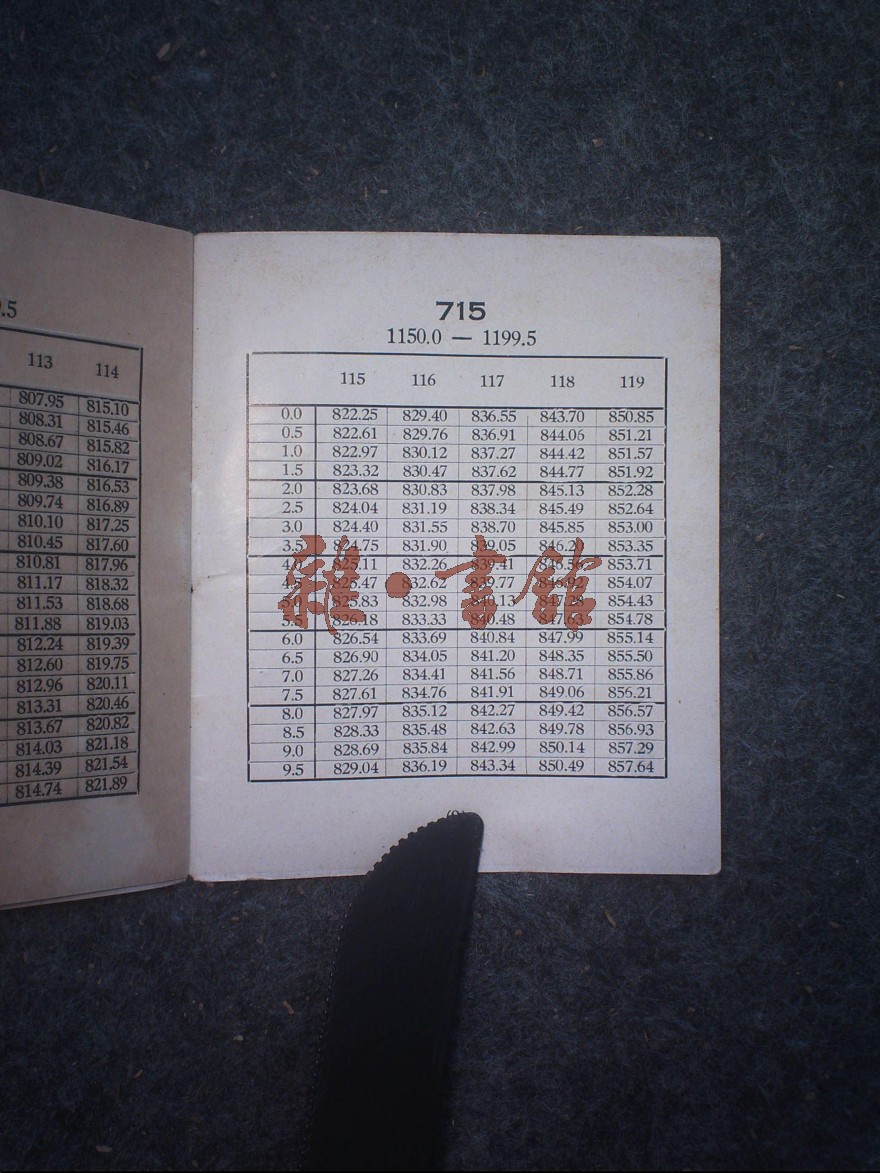 .5
113 114
807.95 815.10
808.31 815.46
808.67 815.82
809.02 816.17
809.38 816.53
809.74 816.89
810.10 817.25
810.45 817.60
810.81 817.96
811.17 818.32
811.53 818.68
811.88 819.03
812.24 819.39
812.60 819.75
812.96 820.11
813.31 820.46
813.67 820.82
814.03 821.18
814.39 821.54
814.74 821.89
715
1150.0 — 1199.5
115 116 117 118 119
0.0 822.25 829.40 836.55 843.70 850.85
0.5 822.61 829.76 836.91 844.06 851.21
1.0 822.97 830.12 837.27 844.42 851.57
1.5 823.32 830.47 837.62 844.77 851.92
2.0 823.68 830.83 837.98 845.13 852.28
2.5 824.04 831.19 838.34 845.49 852.64
3.0 824.40 831.55 838.70 845.85 853.00
3.5 824.75 831.90 839.05 853.35
4.0 825.11 832.26 839.41 846.56 853.71
4.5 825.47 832.62 839.77 846.92 854.07
5.0 825.83 832.98 840.13 847.28 854.43
5.5 826.18 833.33 840.48 847.63 854.78
6.0 826.54 833.69 840.84 847.99 855.14
6.5 826.90 834.05 841.20 848.35 855.50
7.0 827.26 834.41 841.56 848.71 855.86
7.5 827.61 834.76 841.91 849.06 856.21
8.0 827.97 835.12 842.27 849.42 856.57
8.5 828.33 835.48 842.63 849.78 856.93
9.0 828.69 835.84 842.99 850.14 857.29
9.5 829.04 836.19 843.34 850.49 857.64
雜·書館